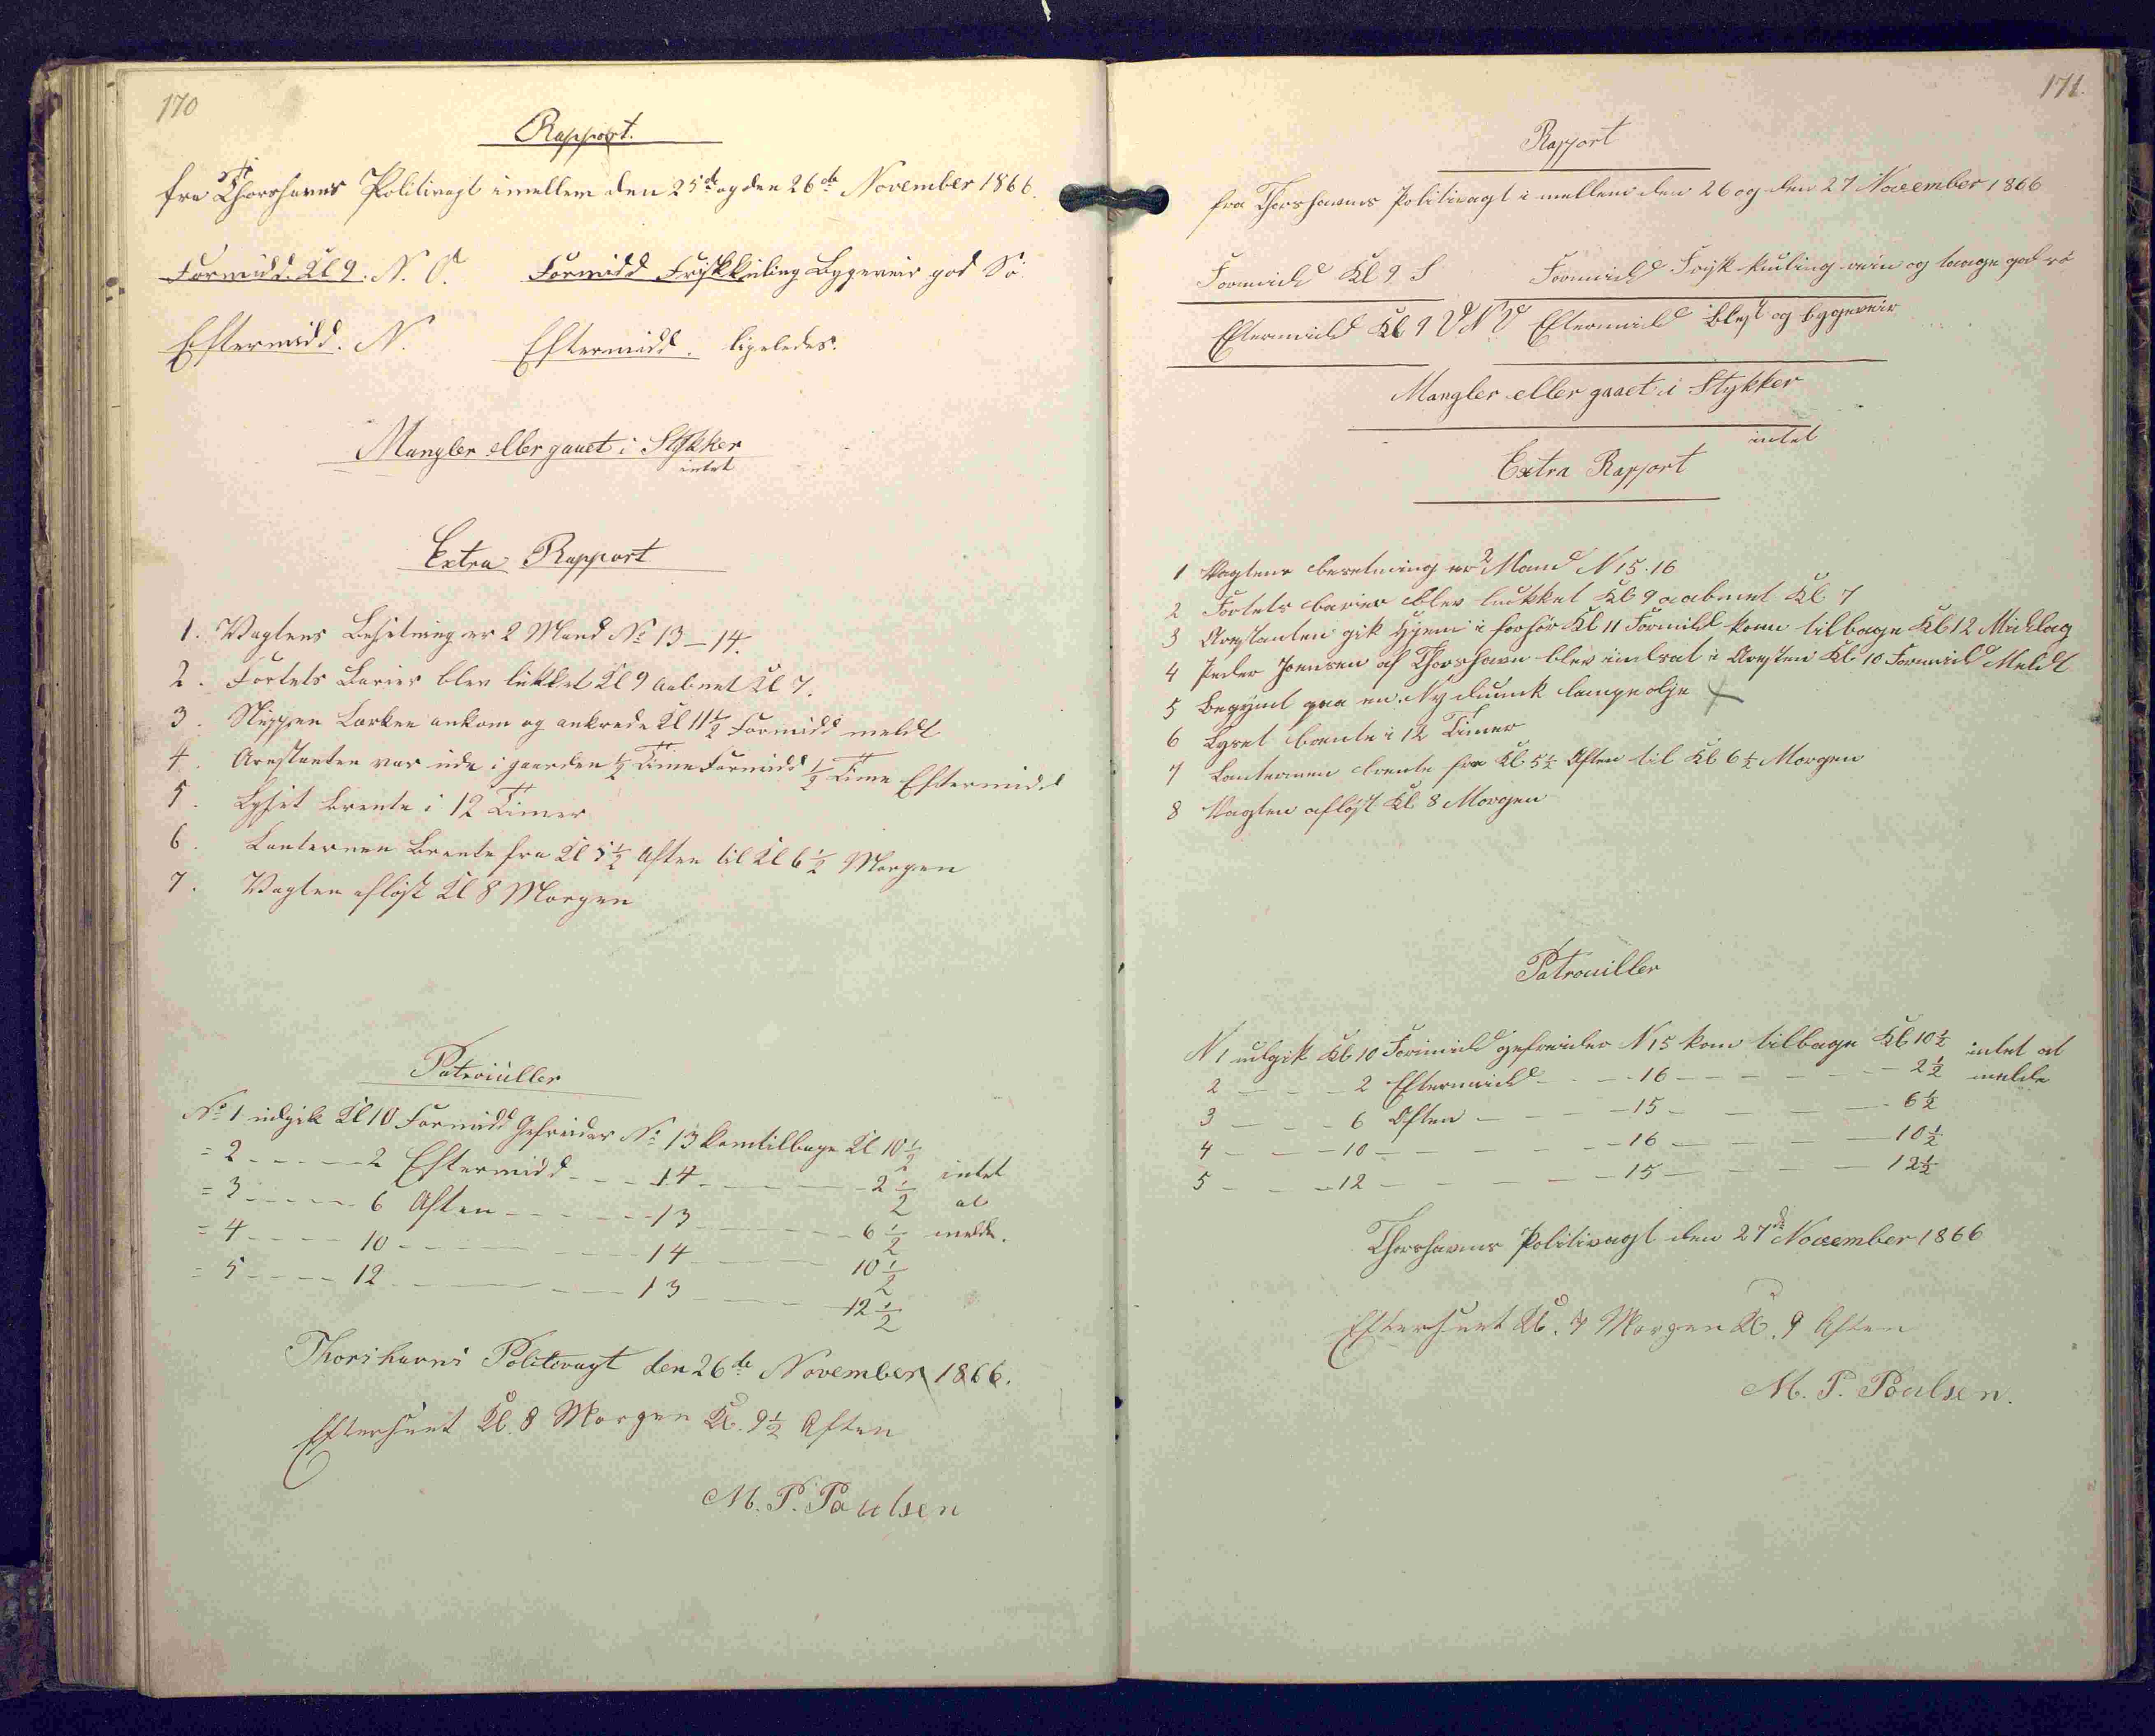 170
Rapport.
fra Thorshavns Politivagt imellem den 25de og den 26de November 1866.
Formidd. Kl 9. N. O. Formidd Friskkuling Bygeveir god Sö
Eftermidd. N. Eftermidd. ligeledes.
Mangler eller gaaet i Stÿkker
intet
Extra Rapport
1. Vagtens Besetning er 2 Mand No 13-14.
2. Fortets Barier blev lukket Kl 9 aabnet Kl 7.
3. Slüppen Lærken ankom og ankrede Kl 11½ Formidd meldt
4. Arestanten var ude i gaarden ½ Time Formidd ½ Time Eftermidd
5. Lyset brente i 12 Timer
6. Lanternen Brente fra Kl 5½ Aften til Kl 6½ Morgen
7. Vagten afløst Kl 8 Morgen
Patroüller
No 1 udgik Kl 10 Formidd Gefreider No 13 kom tilbage Kl 10½
= 2 - - - - 2 Eftermidd - - - 14 - - - - 2½ intet
= 3 - - - - 6 Aften - - - - 13 - - - - 6½ at
= 4 - - - - 10 - - - - 14 - - - - 10½ melde.
= 5 - - - - 12 - - - - 13 - - - - 12½
Thorshavns Politivagt den 26de November 1866.
Efterseet Kl. 8 Morgen Kl. 9½ Aften
M. P. Poulsen
171.
Rapport
fra Thorshavns Politivagt i mellem den 26 og den 27 November 1866
Formidd Kl 9 S Formidd Frisk kuling rein og taage god sö
Eftermidd Kl 9 VNV Eftermidd Blest og bygeveir
Mangler eller gaaet i Stykker
intet
Extra Rapport
1 Vagtens besetning er 2 Mand N 15-16
2 Fortets barier blev lukket Kl 9 aabnet Kl 7
3 Arestanten gik Hjem i forhör Kl 11 Formidd kom tilbage Kl 12 Middag
4 Peder Joensen af Thorshavn blev indsat i Aresten Kl 10 Formidd Meldt
5 Begynt paa en Ny dunk lampeolje
6 Lyset brente i 12 Timer
7 Lanternen brente fra Kl 5½ Aften til Kl 6½ Morgen
8 Vagten afløst Kl 8 Morgen
Patrouiller
N 1 udgik Kl 10 Formidd gefreider N 15 kom tilbage Kl 10½ intet at
2 - - - 2 Eftermidd - - - 16 - - - - 2½ melde
3 - - - 6 Aften - - - 15 - - - - 6½
4 - - - 10 - - - 16 - - - - 10½
5 - - - 12 - - - 15 - - - - 12½
Thorshavns Politivagt den 27de November 1866
Efterseet Kl. 7 Morgen Kl. 9 Aften
M. P. Poulsen.